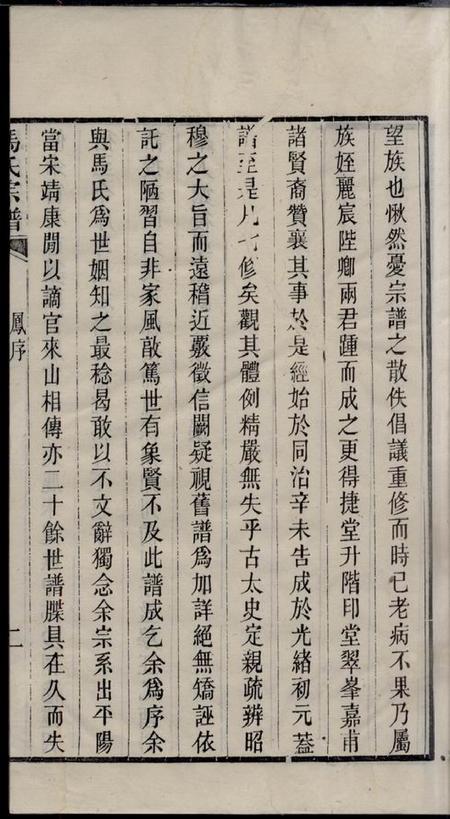 望族也愀然憂宗譜之散佚倡議重修而時已老病不果乃屬
族姪麗宸陛卿兩君踵而成之更得捷堂升階印堂翠峯嘉甫
諸賢裔贊襄其事於是經始於同治辛未告成於光緒初元蓋
譜至是凡七修矣觀其體例精嚴無失乎古太史定親疏辨昭
穆之大旨而遠稽近覈徵信闕疑視舊譜爲加詳絕無矯誣依
託之陋習自非家風敦篤世有象賢不及此譜成乞余爲序余
與馬氏爲世姻知之最稔曷敢以不文辭獨念余宗系出平陽
當宋靖康閒以謫官來山相傳亦二十餘世譜牒具在久而失
馬氏宗譜 鳳序 二